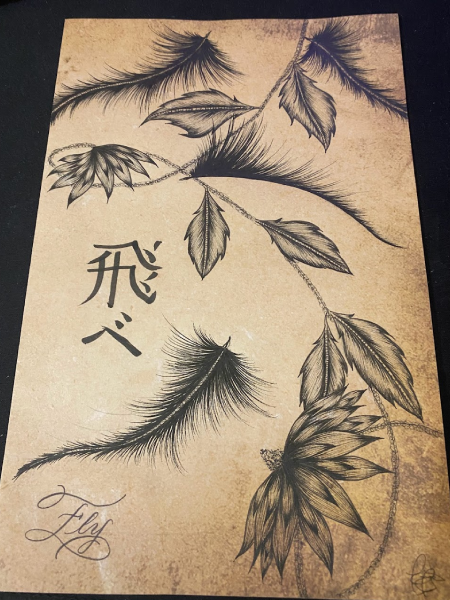 飛
べ
Fly